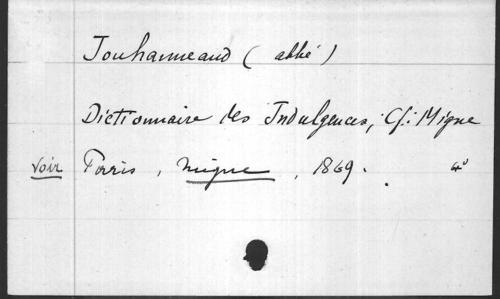 Jouhanneaud (abbé)
Dictionnaire des Indulgences, Cf: Migne
voir Paris, Migne, 1869. 4º